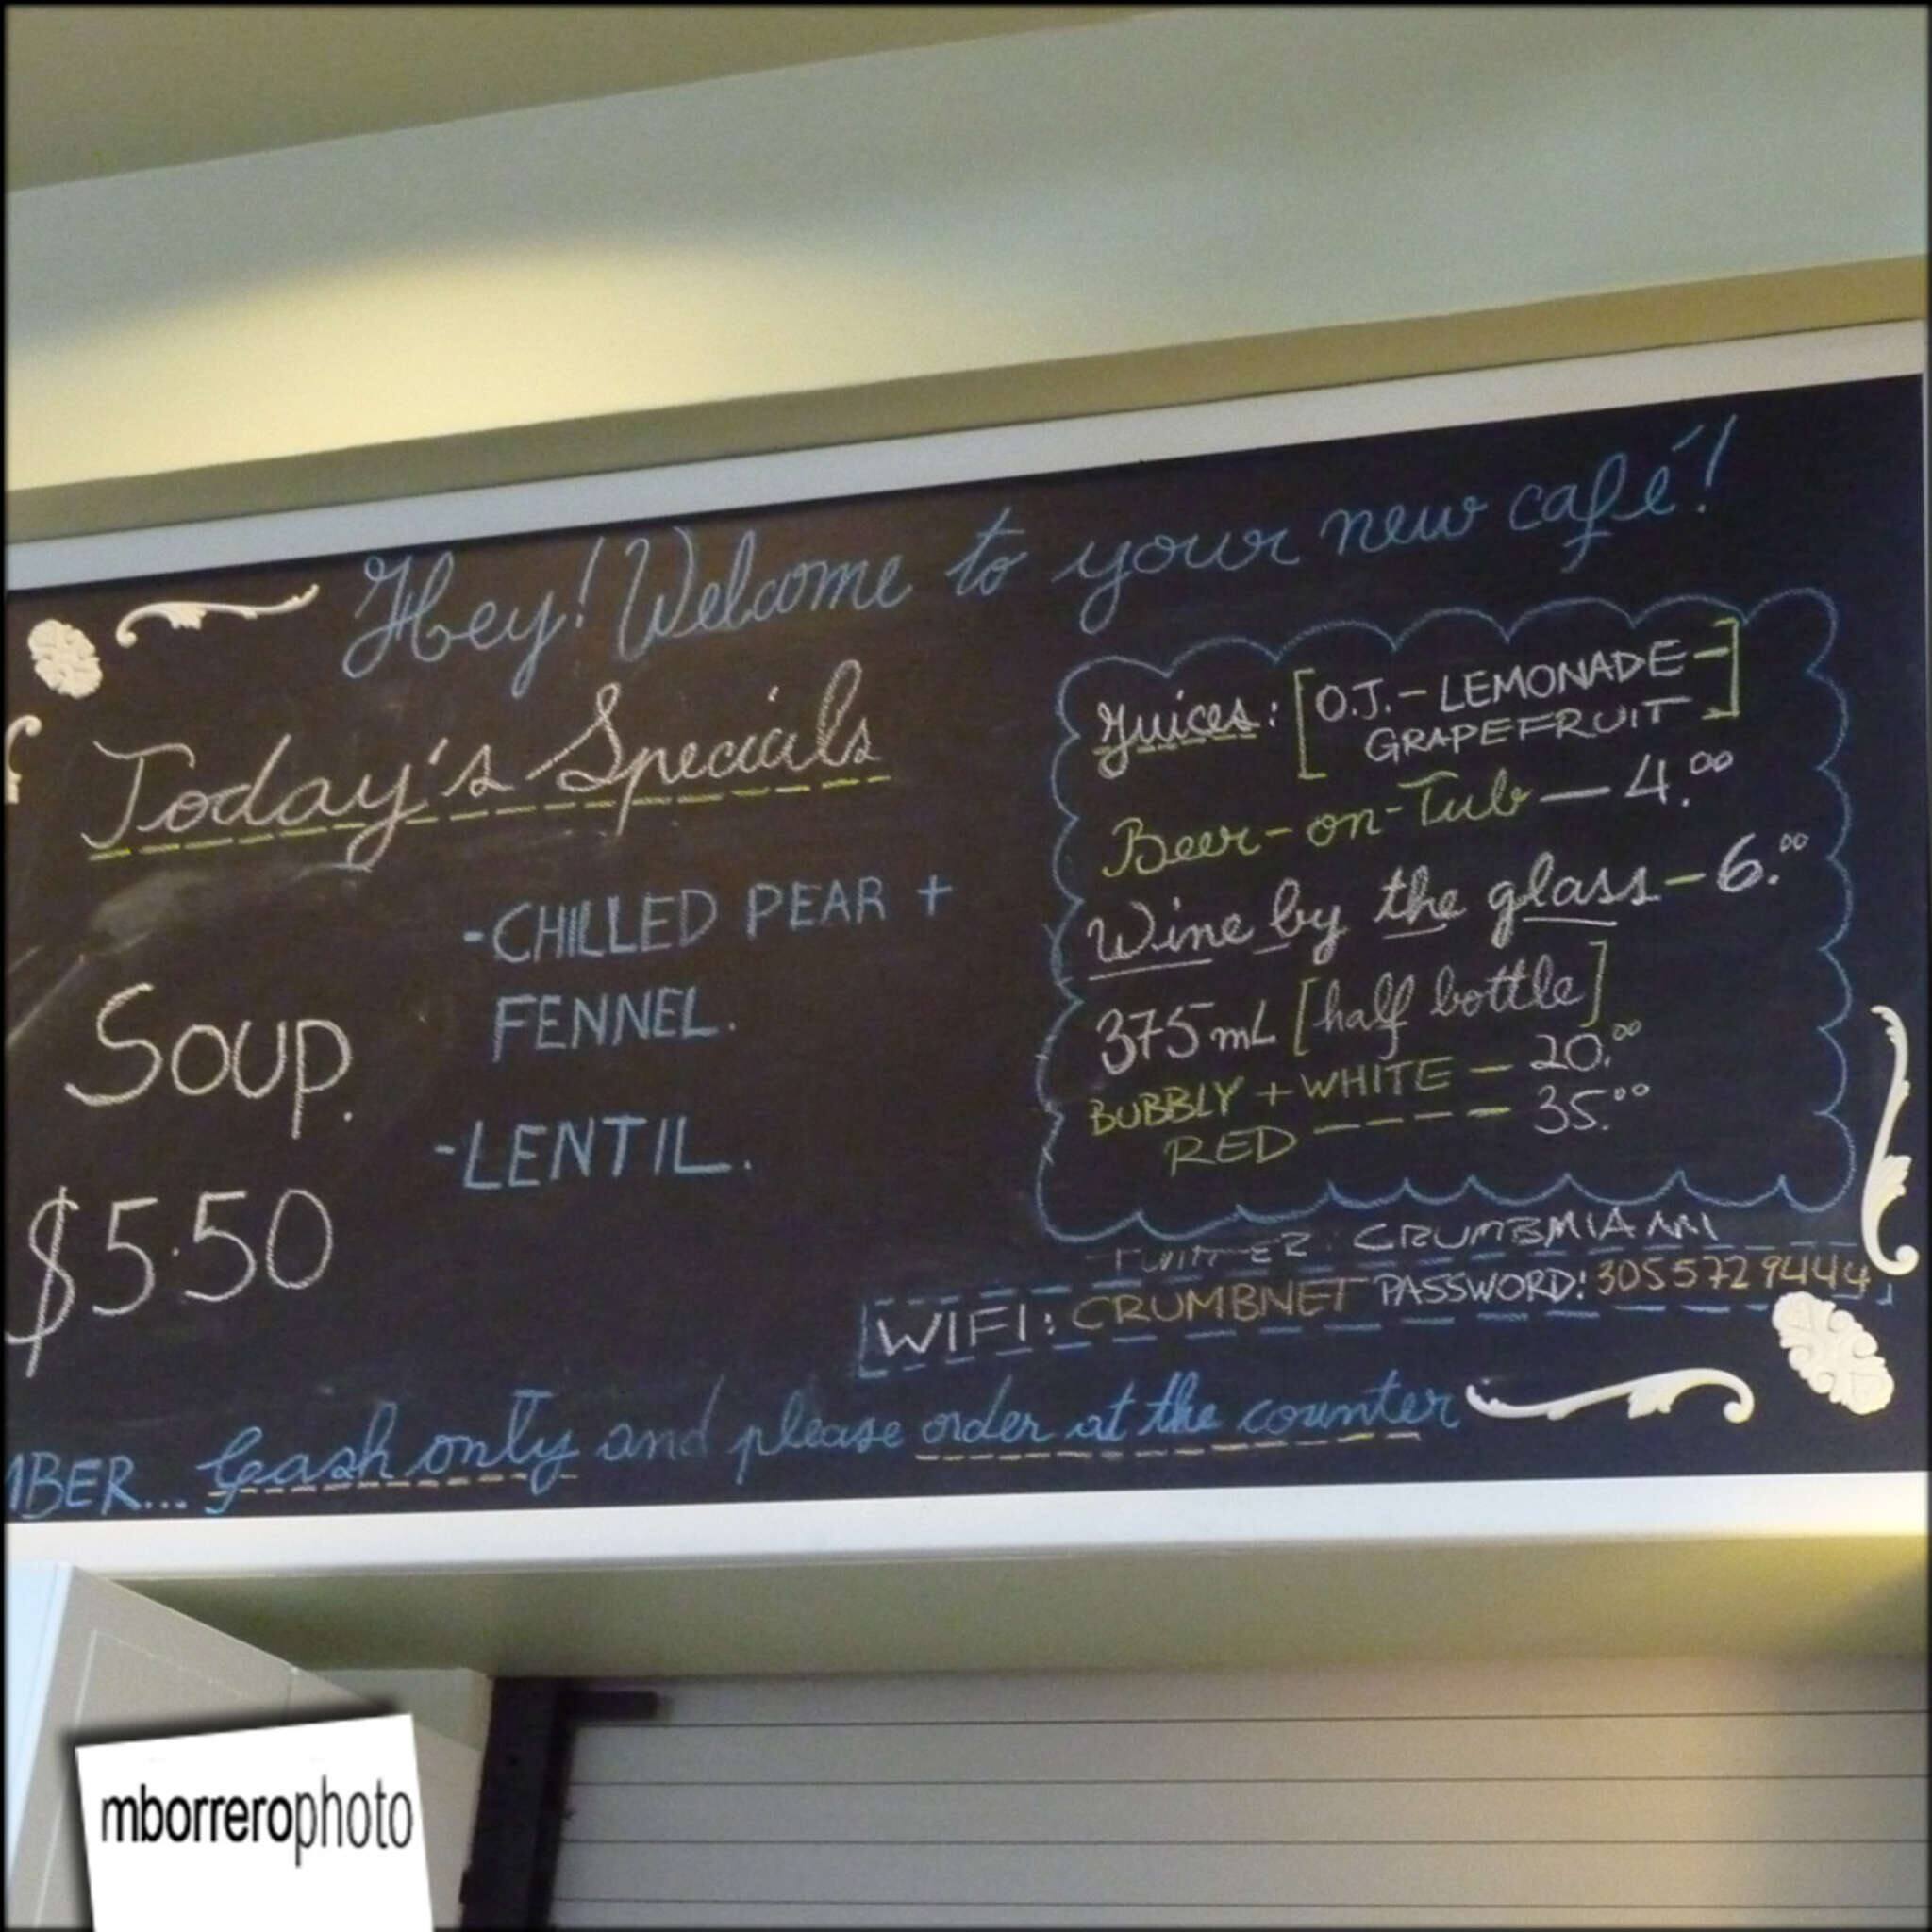 Hey! Welcome to your new café!
Today's Specials
Soup.
$5.50
-CHILLED PEAR +
FENNEL.
-LENTIL.
Juices: [O.J. - LEMONADE -
GRAPEFRUIT]
Beer-on-Tub — 4.00
Wine by the glass - 6.00
375mL [half bottle]
BUBBLY + WHITE — 20.00
RED ---- 35.00
TWITTER: CRUMBMIAMI
WIFI: CRUMBNET PASSWORD: 3055729444
MBER... Cash only and please order at the counter
mborrerophoto